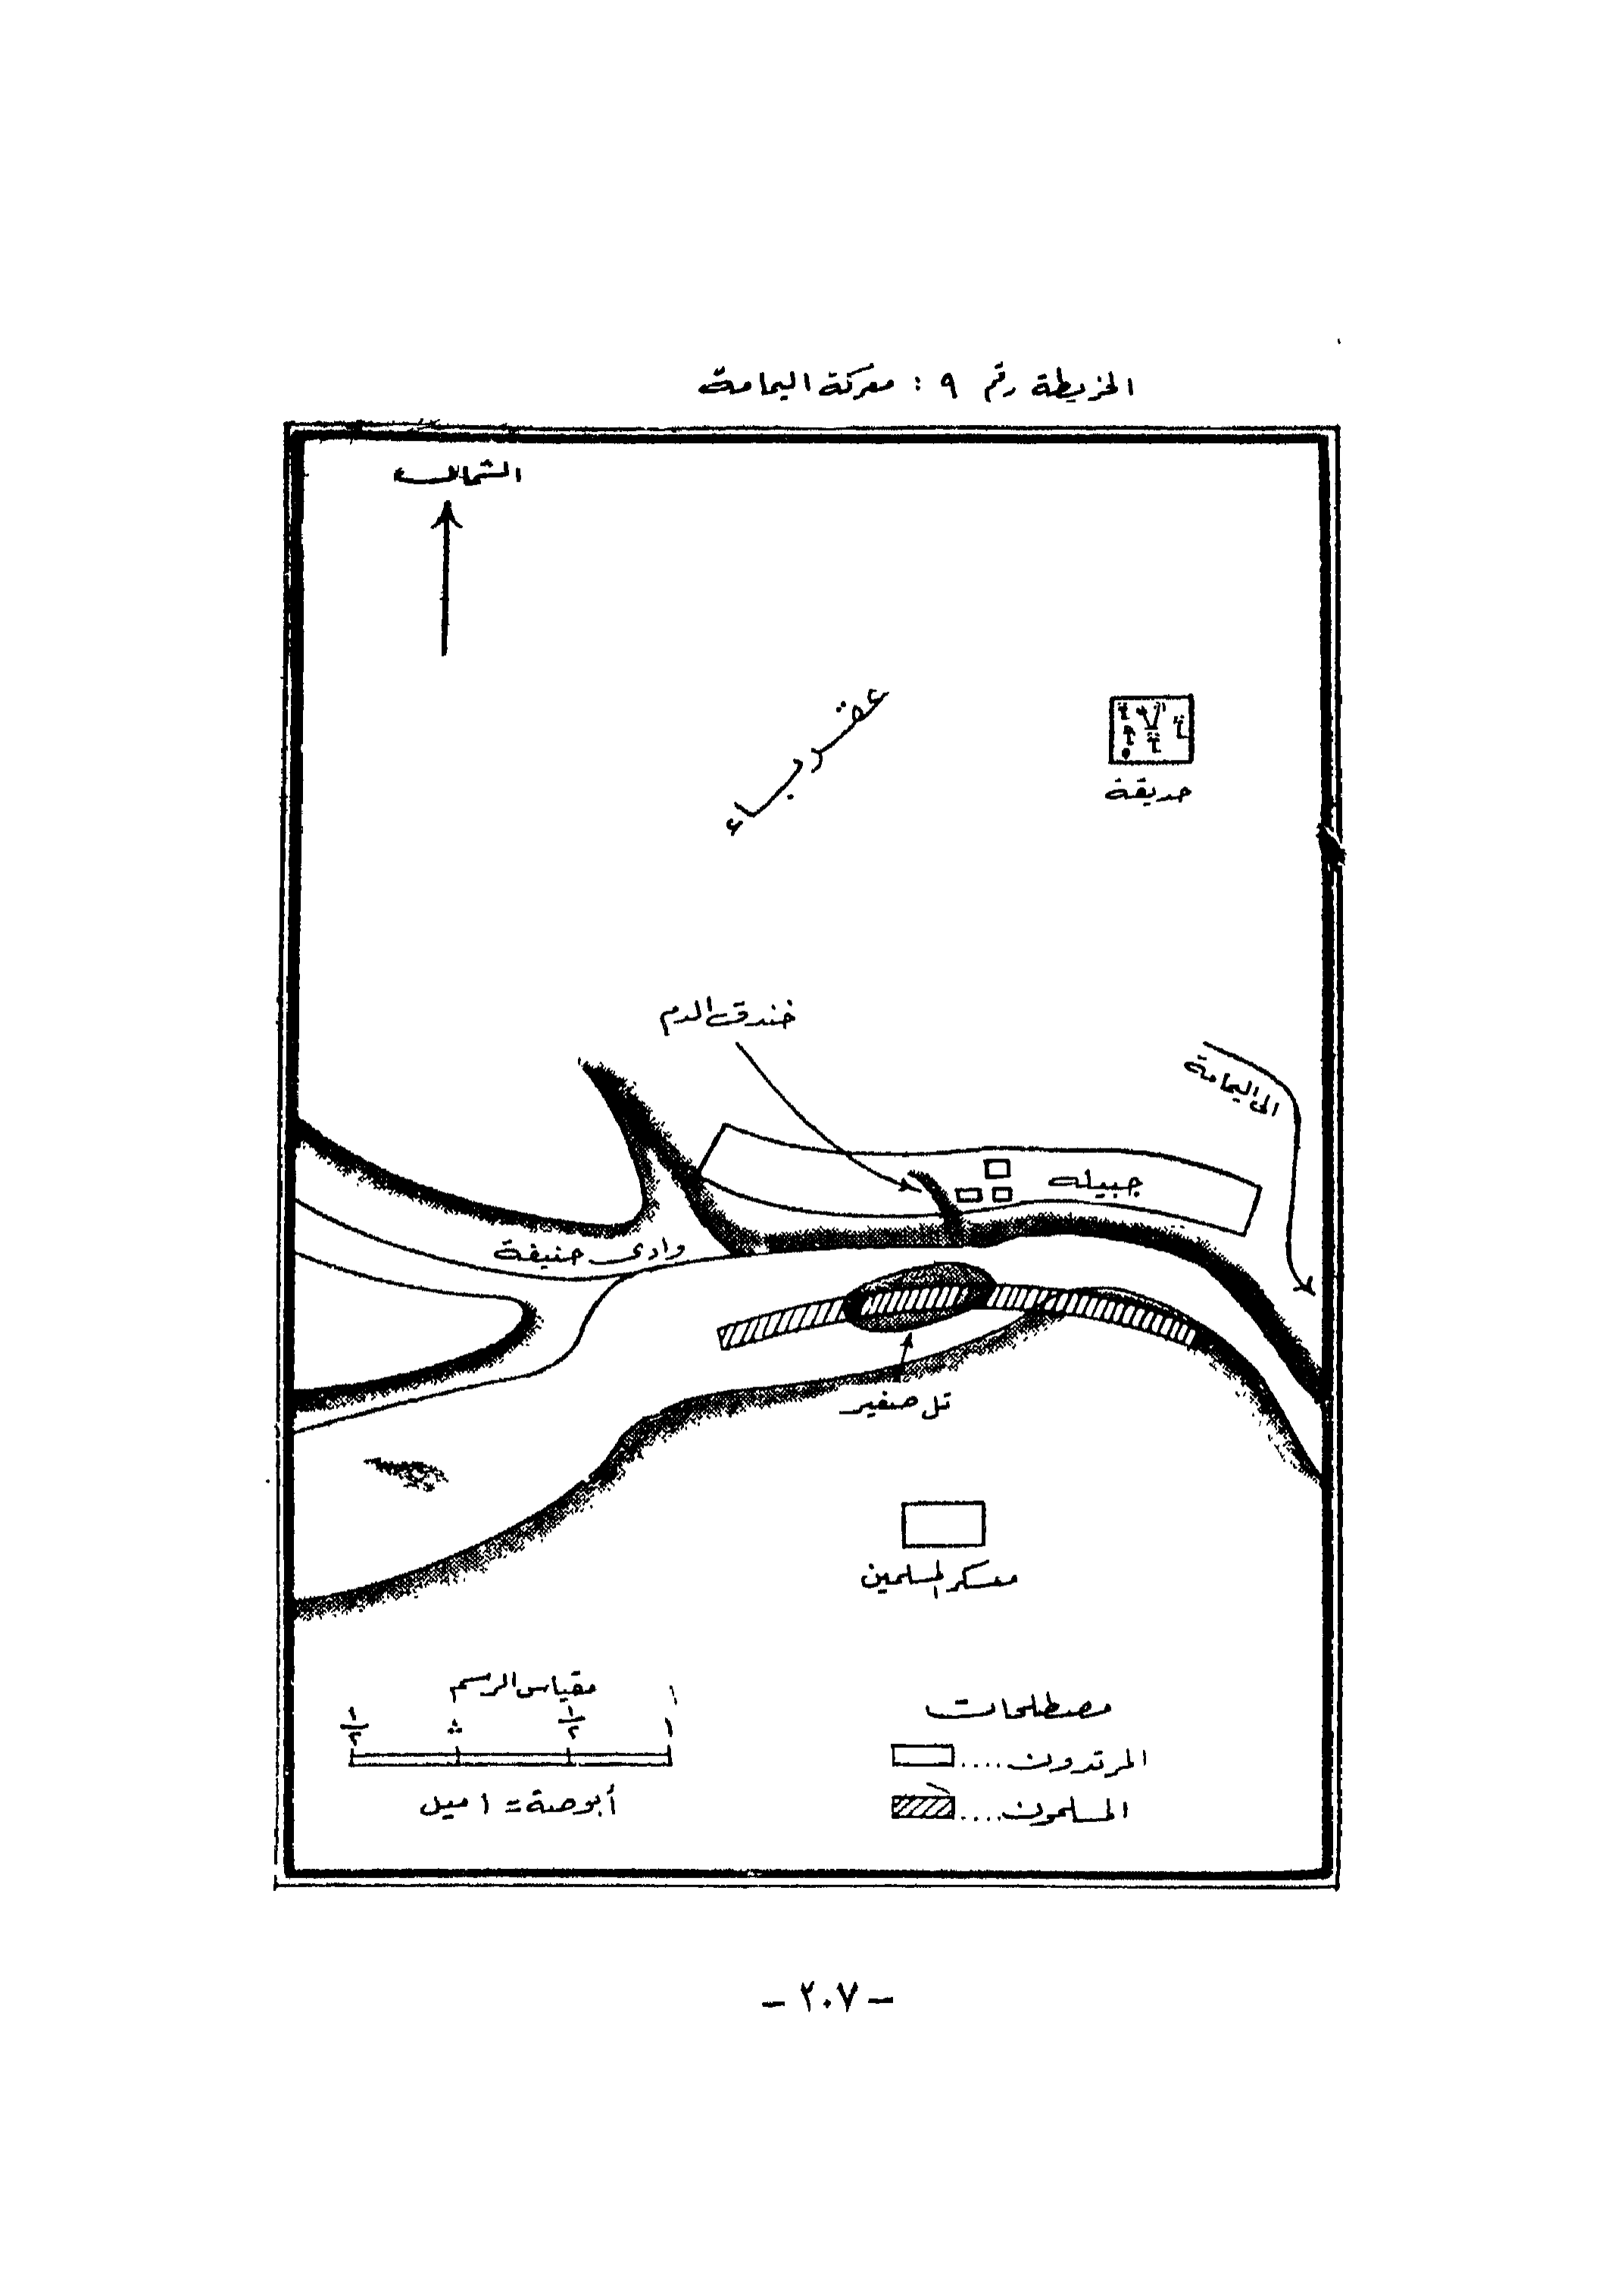 الخريطة رقم ٩ : معركة اليمامة
الشمال
عقرباء
حديقة
خندق الدم
الى اليمامة
جبيله
وادى حنيفة
تل صغير
معسكر المسلمين
مقياس الرسم
١/٢ ٠ ١/٢ ١
أبوصة = ١ ميل
مصطلحات
المرتدون ....
المسلمون ....
- ٢٠٧ -